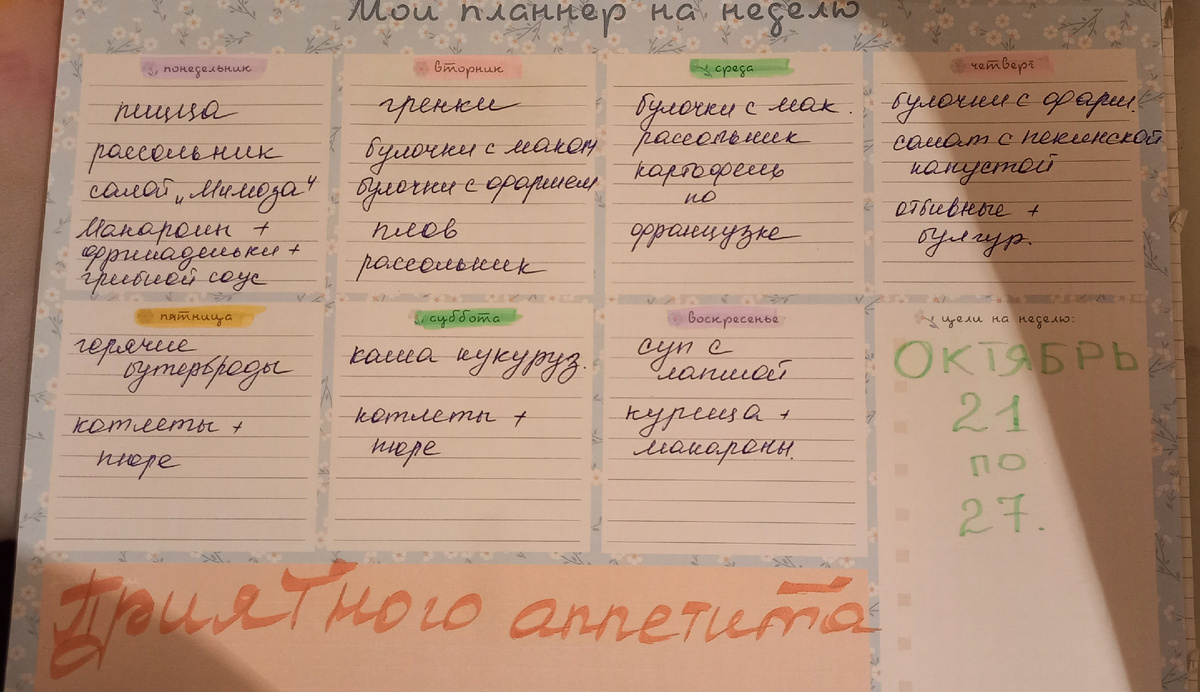 Мой планнер на неделю
понедельник
пицца
рассольник
салат „Мимоза"
Макароны +
фрикадельки +
грибной соус
вторник
гренки
булочки с маком
булочки с фаршем
плов
рассольник
среда
булочки с мак.
рассольник
картофель
по
французке
четверг
булочки с фарш
салат с пекинской
капустой
отбивные +
булгур.
пятница
горячие
бутерброды
котлеты +
пюре
суббота
каша кукуруз.
котлеты +
пюре
воскресенье
суп с
лапшой
курица +
макароны.
цели на неделю:
ОКТЯБРЬ
21
по
27.
Приятного аппетита